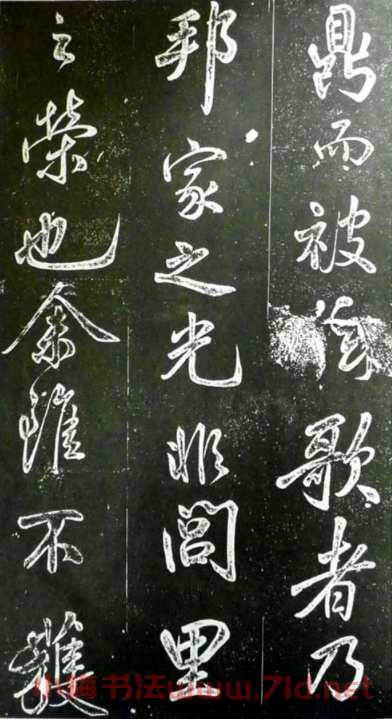 鼎而被歌者乃
邦家之光非閭里
之榮也余雖不獲
书法www.7ld.net